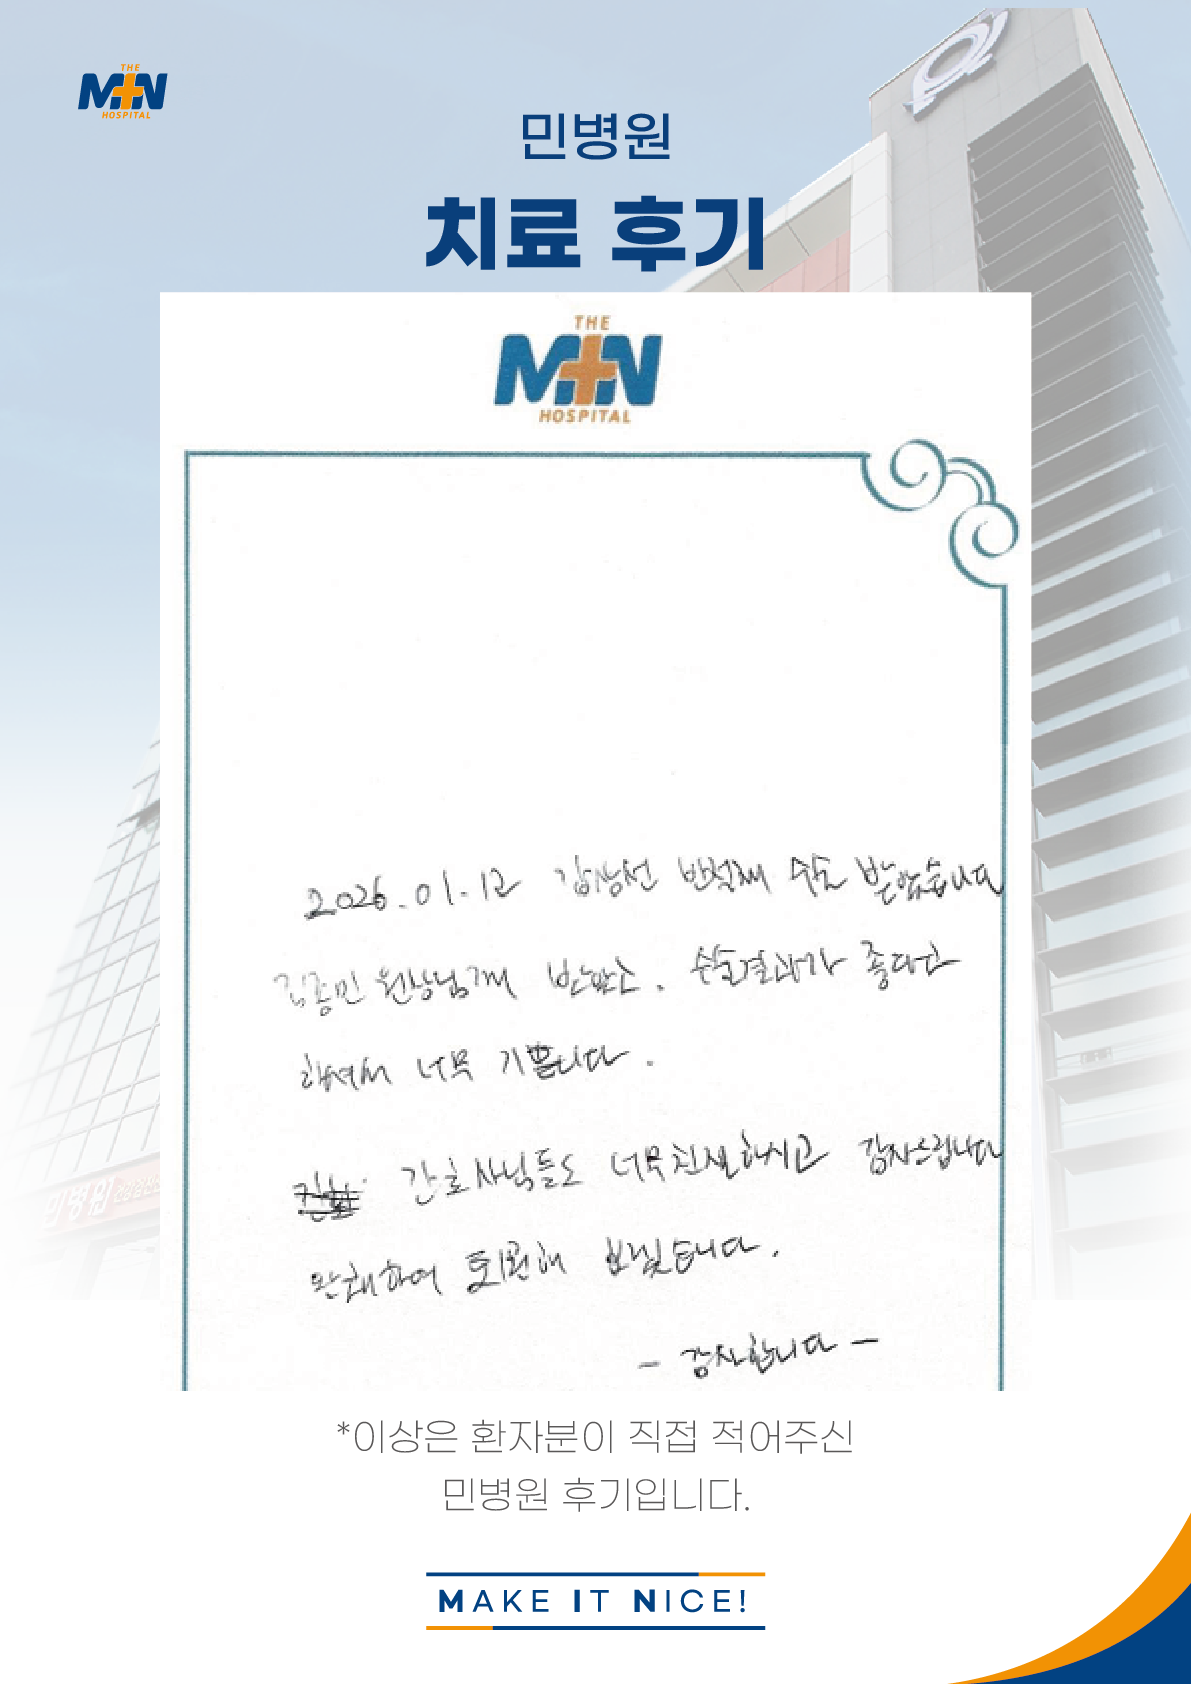 THE
MIN
HOSPITAL
민병원
치료 후기
THE
MIN
HOSPITAL
2026.01.12 갑상선 반절제 수술 받았습니다
김종민 원장님께 받았고. 수술결과가 좋다고
하셔서 너무 기쁩니다.
간호사님들도 너무친절하시고 감사드립니다
완쾌하여 퇴원해 보겠습니다.
- 감사합니다 -
민병원
*이상은 환자분이 직접 적어주신
민병원 후기입니다.
MAKE IT NICE!